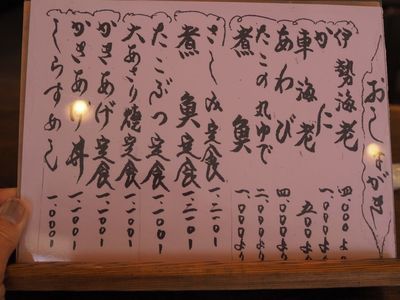 おしながき
伊勢海老 四〇〇〇より
かに 一、〇〇〇より
車海老 五〇〇より
あわび 四〇〇〇より
たこの丸ゆで 二、〇〇〇より
煮魚 一、〇〇〇より
さしみ定食
煮魚定食
たこぶつ定食
大あさり焼定食
かきあげ定食
かきあげ丼
しらすめし 一、〇〇〇ー